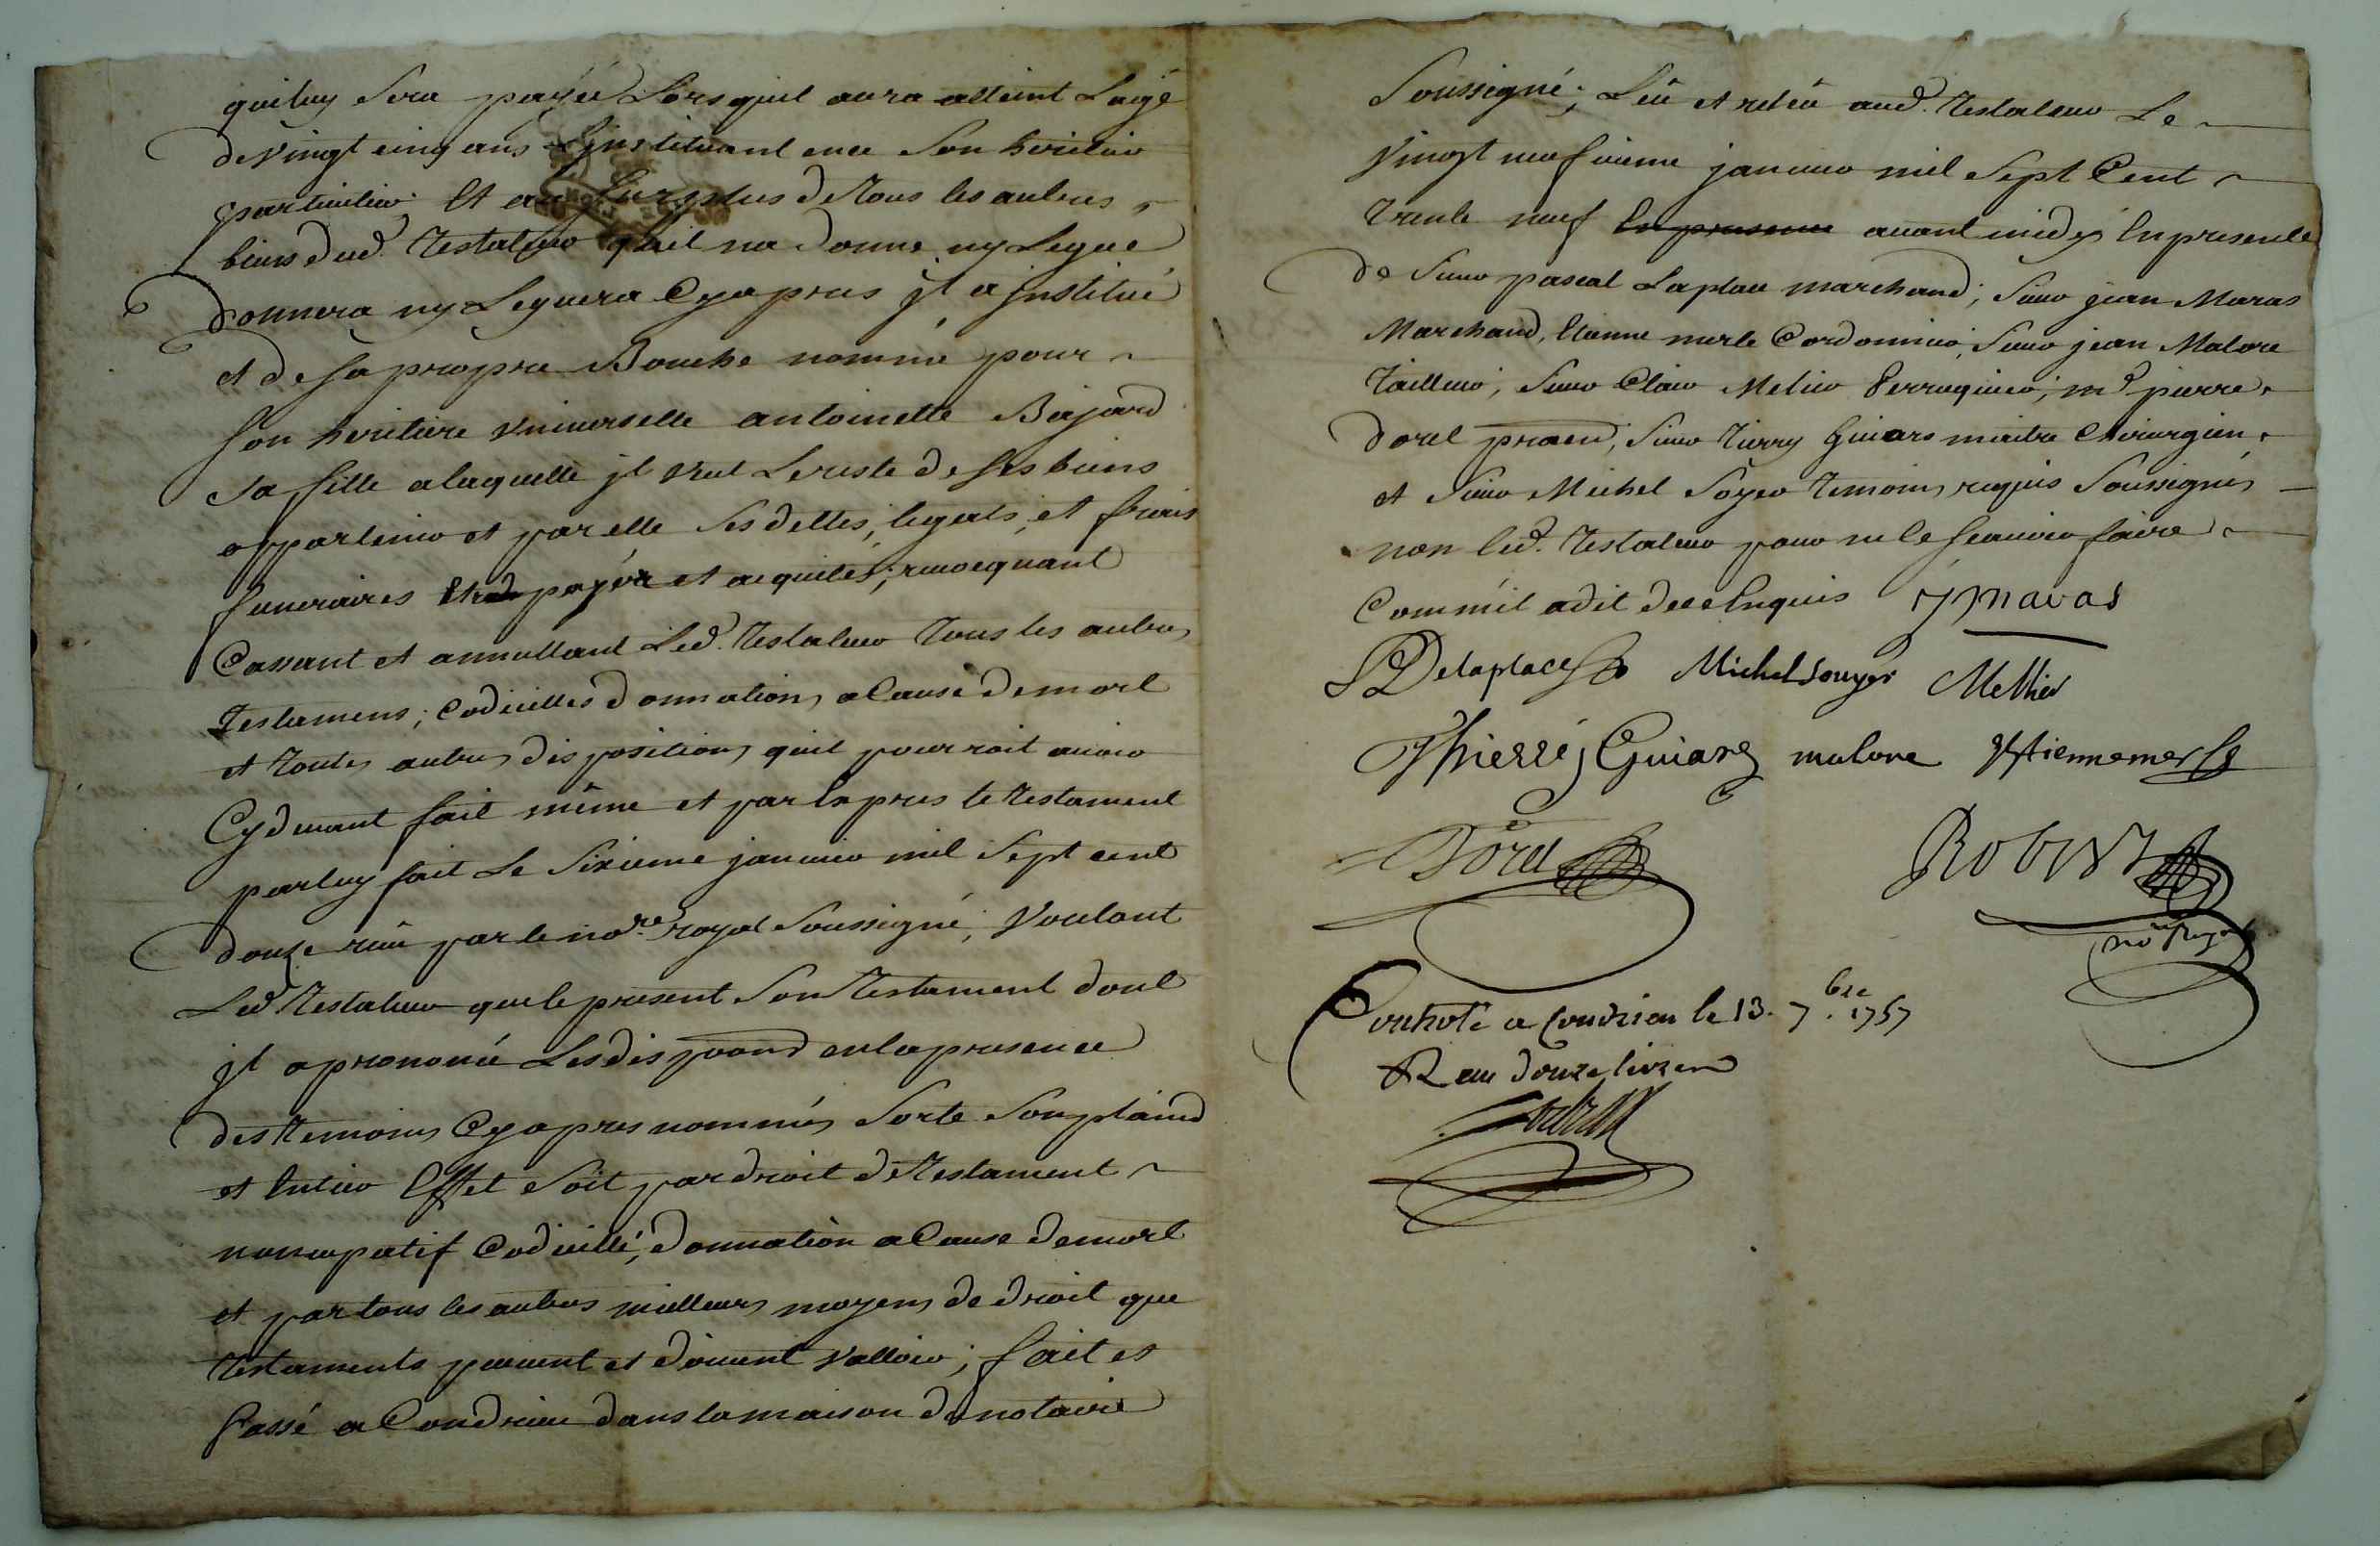 quiluy Sera payée Lors quil aura atteint Laige
de Vingt cinq ans Linstituant en ce Son heritier
particulier Et au Surplus de Tous les autres
biens dud. Testateur quil na donné ny Legué
donnera ny Leguera Cyapres jl a jnstitué
et de sa propre Bouche nommé pour
Son heritiere Universelle antoinette Bajard
Sa fille a laquelle jl Veut Le reste de ses biens
appartenir et par elle Ses dettes, legats, et frais
funeraires payér et acquités; revocquant
Cassant et annullant Led. Testateur Tous les autres
Testamens; codicilles donnations a Cause de mort
et Toutes autres dispositions quil pourroit avoir
Cydevant fait même et par Expres le Testament
parluy fait Le Sixieme janvier mil Sept cent
douze reçu par le nore. royal Soussigné; Voulant
Led Testateur que le present Son Testament dont
jl a prononcé Les dispoond en la presence
des Temoins Cyapres nommés Sorte Son plaind
et Entier Effet Soit par droit de Testament
noncupatif Codicille, donnation a Cause de mort
et par tous les autres meilleurs moyens de droit que
Testaments peuvent et doivent Valloir; fait et
Passé a Condrieu dans la maison du notaire
Soussigné; Leü et releü aud. Testateur Le
Vingt neufvieme janvier mil Sept Cent
Trente neuf En presence avant midy En presence
de Sieur pascal Laplace marchand; Sieur jean Maras
Marchand, Etienne merle Cordonnier, Sieur jean Malore
Tailleur; Sieur Claire Metier Perruquier; me pierre
dorel praen; Sieur Tierry Guiars maitre Chirurgien
et Sieur Michel Soyer Temoins requis Soussignés
non led. Testateur pour ne le Scavoir faire
Comm'il a dit de ce Enquis J Maras
Delaplace Michel Souyer Mettier
Thierré Guiard malore Estienne merle
Dorel Robert
no. Royal
Controlé a Condrieu le 13. 7.bre 1757
R eu douze livres